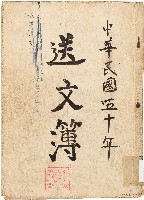 中華民國四十年
送文簿